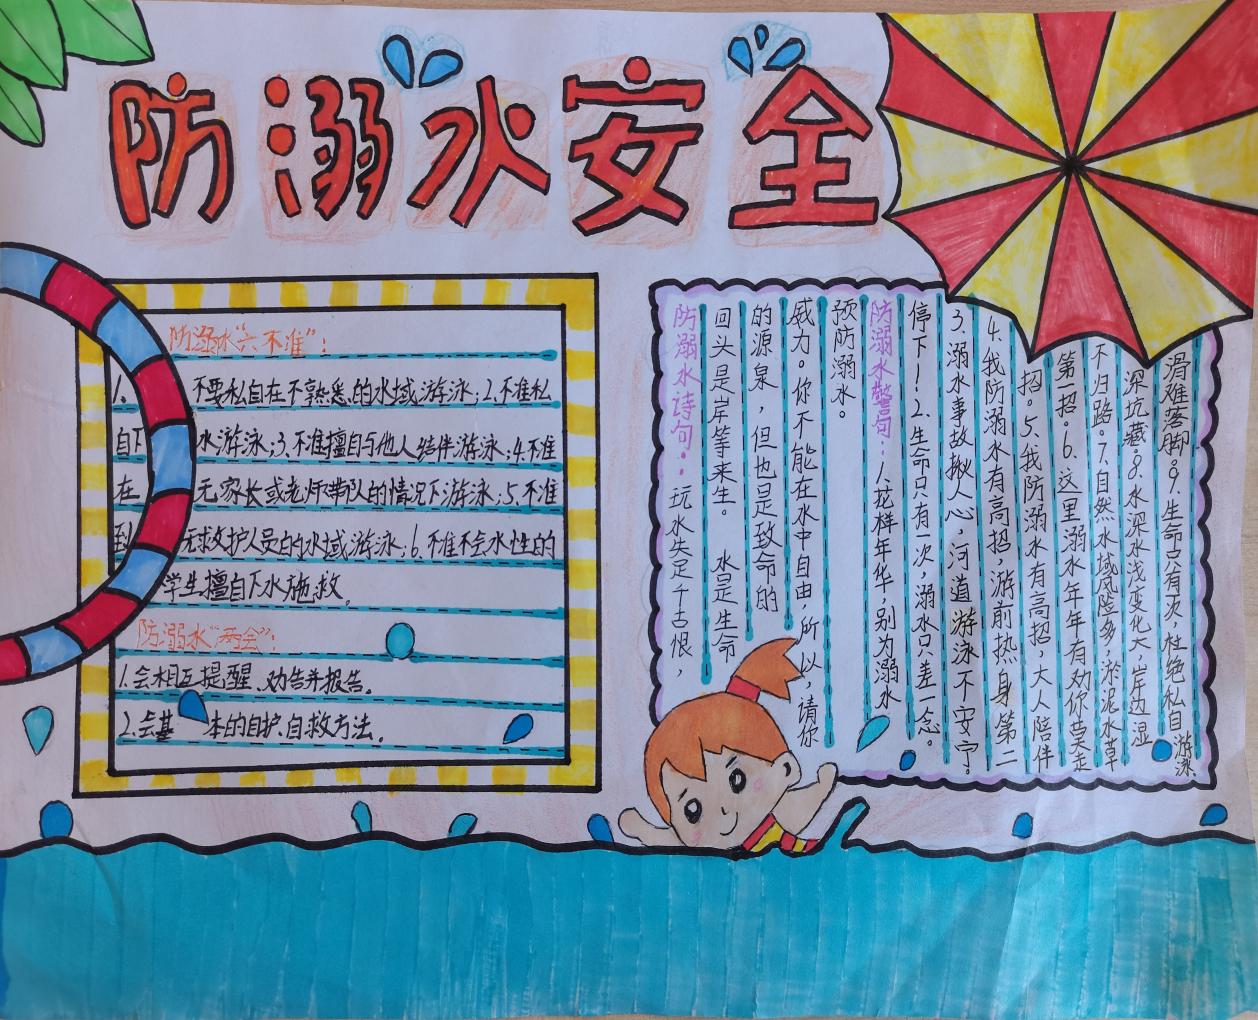 防溺水安全
防溺水“六不准”：
1、不要私自在不熟悉的水域游泳；2、不准私
自下水游泳；3、不准擅自与他人结伴游泳；4、不准
在无家长或老师带队的情况下游泳；5、不准
到无救护人员的水域游泳；6、不准不会水性的
学生擅自下水施救。
防溺水“两会”：
1.会相互提醒、劝告并报告。
2.会基本的自护、自救方法。
防溺水诗句：玩水失足千古恨，
回头是岸等来生。 水是生命
的源泉，但也是致命的
威力。你不能在水中自由，所以，请你
预防溺水。
防溺水警句：1、花样年华，别为溺水
停下！2、生命只有一次，溺水只差一念。
3、溺水事故揪人心，河道游泳不安宁。
4、我防溺水有高招，游前热身第二
招。5、我防溺水有高招，大人陪伴
第一招。6、这里溺水年年有劝你莫走
不归路。7、自然水域风险多，淤泥水草
深坑藏。8、水深水浅变化大，岸边湿
滑难落脚。9、生命只有一次，杜绝私自游泳